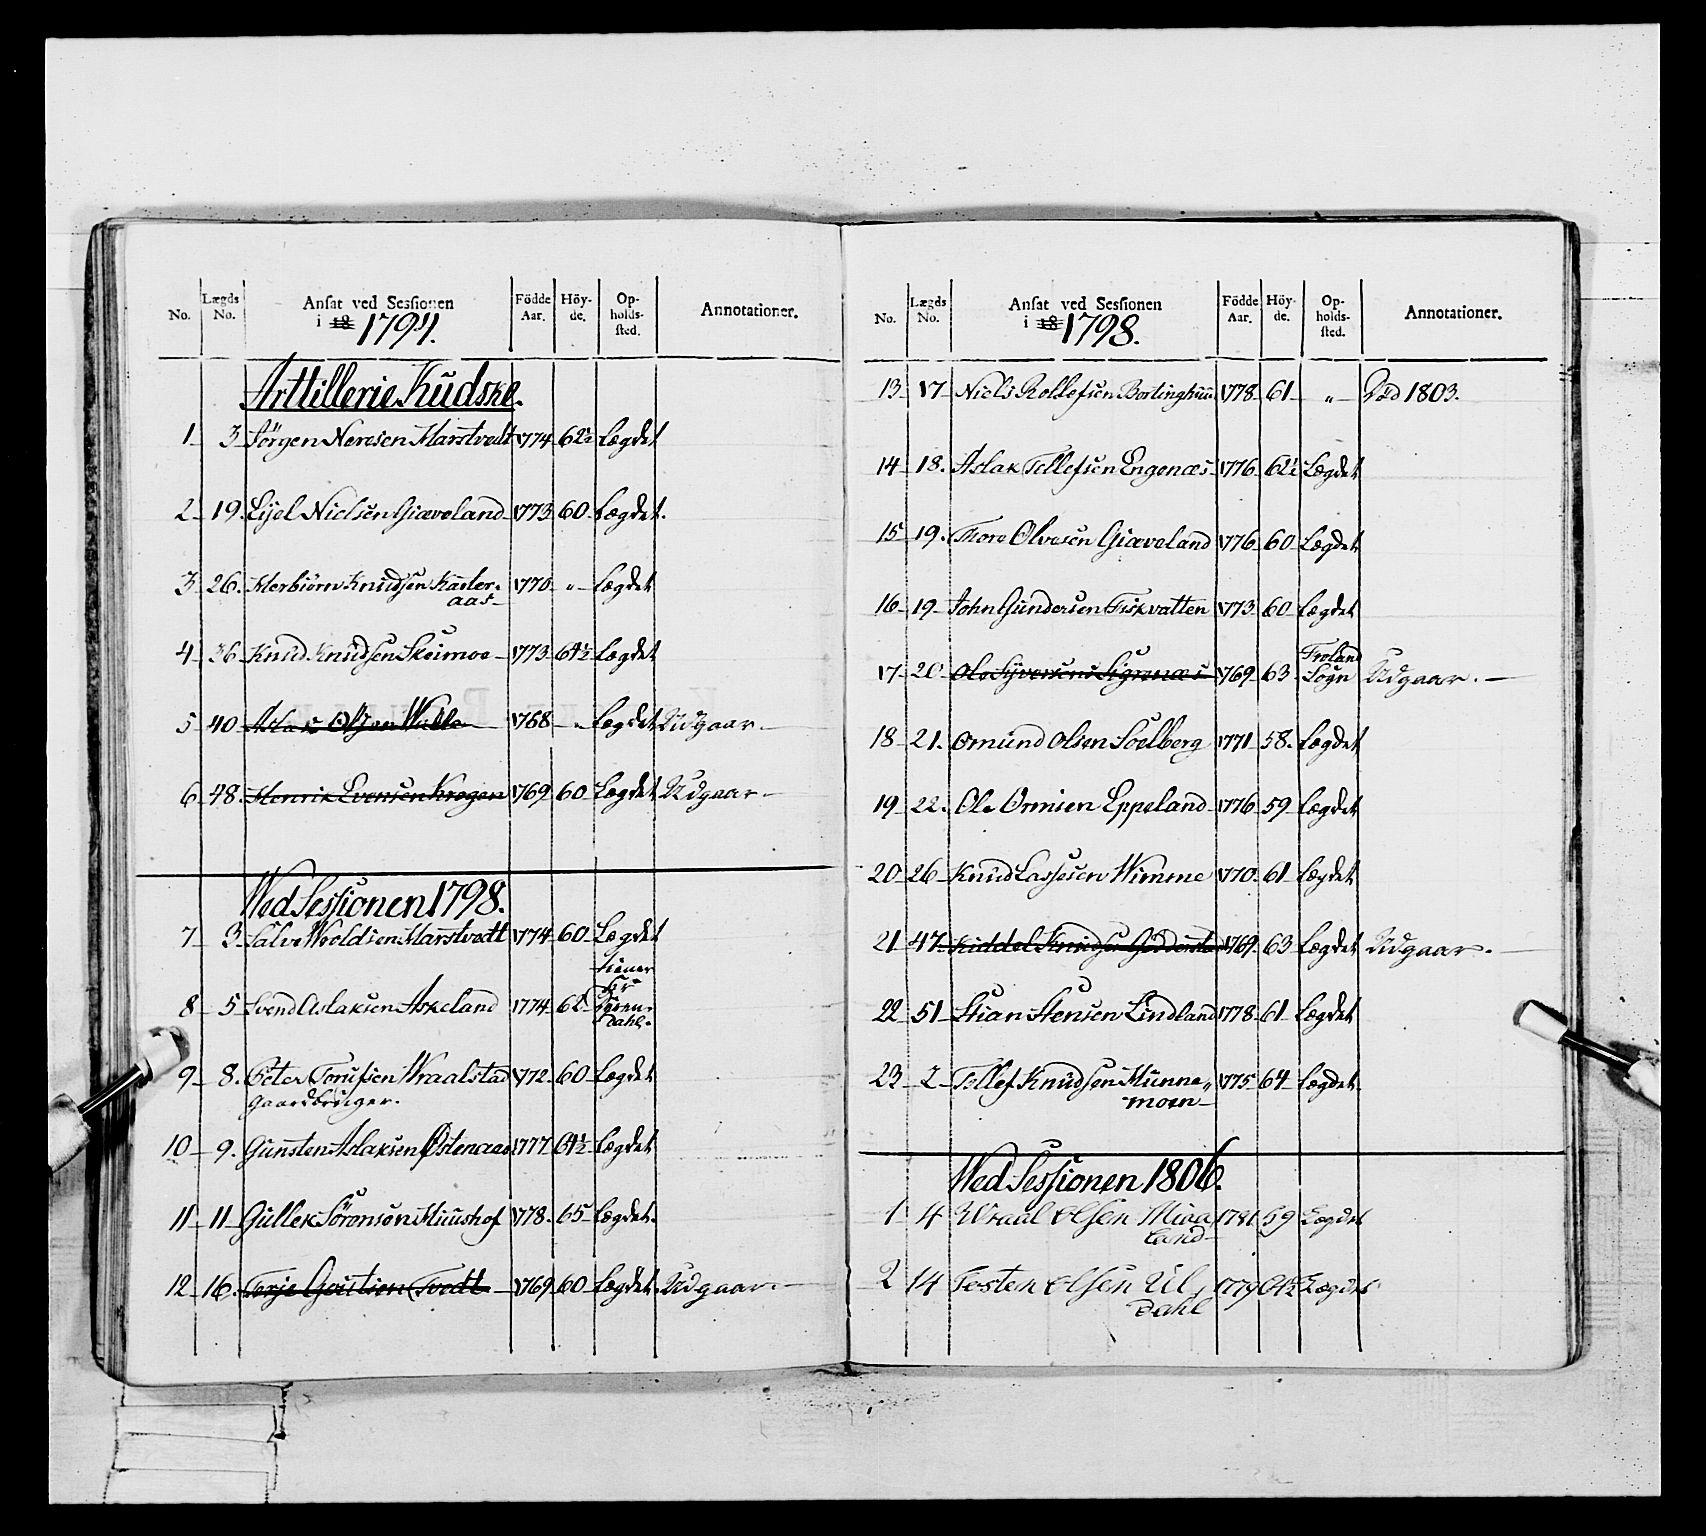 No. Lægds No. Ansat ved Sessionen i 18 1794. Födde Aar. Höyde. Opholdssted. Annotationer.
Arttillerie Kudske.
1 3 Jörgen Neresen Harstvedt 1774 62½ Lægdet
2 19. Eyel Nielsen Giæveland 1773 60 Lægdet.
3 26. Herbiörn Knudsen Kasler-
aas 1770 " Lægdet
4 36 Knud Knudsen Skeimoe 1773 61½ Lægdet
5 40 Aslak Olsen 1768 " Lægdet Udgaar.
6 48. Henrik Evensen Krogen 1769 60 Lægdet Udgaar
Wed Sessionen 1798.
7 3 Salve Woldsen Harstvedt 1774 60 Lægdet
8 5 Svend Aslaksen Askeland 1774 62 tiener
Hr
Sören
Dahl.
9 8. Peter Torufsen Wraalstad 1772 60 Lægdet
Gaardbruger.
10 9. Gunsten Aslaksen Østenaas 1777 61½ Lægdet
11 11 Gullek Sörensön Huushof 1778. 65 Lægdet.
12 16. Terje Goutsen Tvedt 1769 60 Lægdet Udgaar
No. Lægds No. Ansat ved Sessionen i 18 1798. Födde Aar. Höyde. Opholdssted. Annotationer.
13 17 Niels Rollefsen 1778 61 " Död 1803.
14 18. Aslak Tellefsen Engenæs 1776 62½ Lægdet
15 19. Tore Olvesen Giæveland 1776 60 Lægdet
16 19 John Gundersen Fiskvatten 1773 60 Lægdet
17 20 Ole Syversens Signæs 1769 63 Froland
Sogn Udgaar.
18 21. Omund Olsen Soelberg 1771 58. Lægdet
19 22. Ole Ormsen Eppeland 1776 59 Lægdet
20 26 Knud Lassesen Wimme 1770 61 Lægdet
21 47 Kiddel Knudsen 1769 63 Lægdet Udgaar.
22 51 Stian Stensen Lindland 1778 61 Lægdet
23 2 Tellef Knudsen Hunne,,
moen 1775 64 Lægdet
Wed Sessionen 1806.
1 4 Wraal Olsen Miva
land 1781 59 Lægdet
2 14 Tosten Olsen Ul,
Dahl 1779 61½ Lægdet